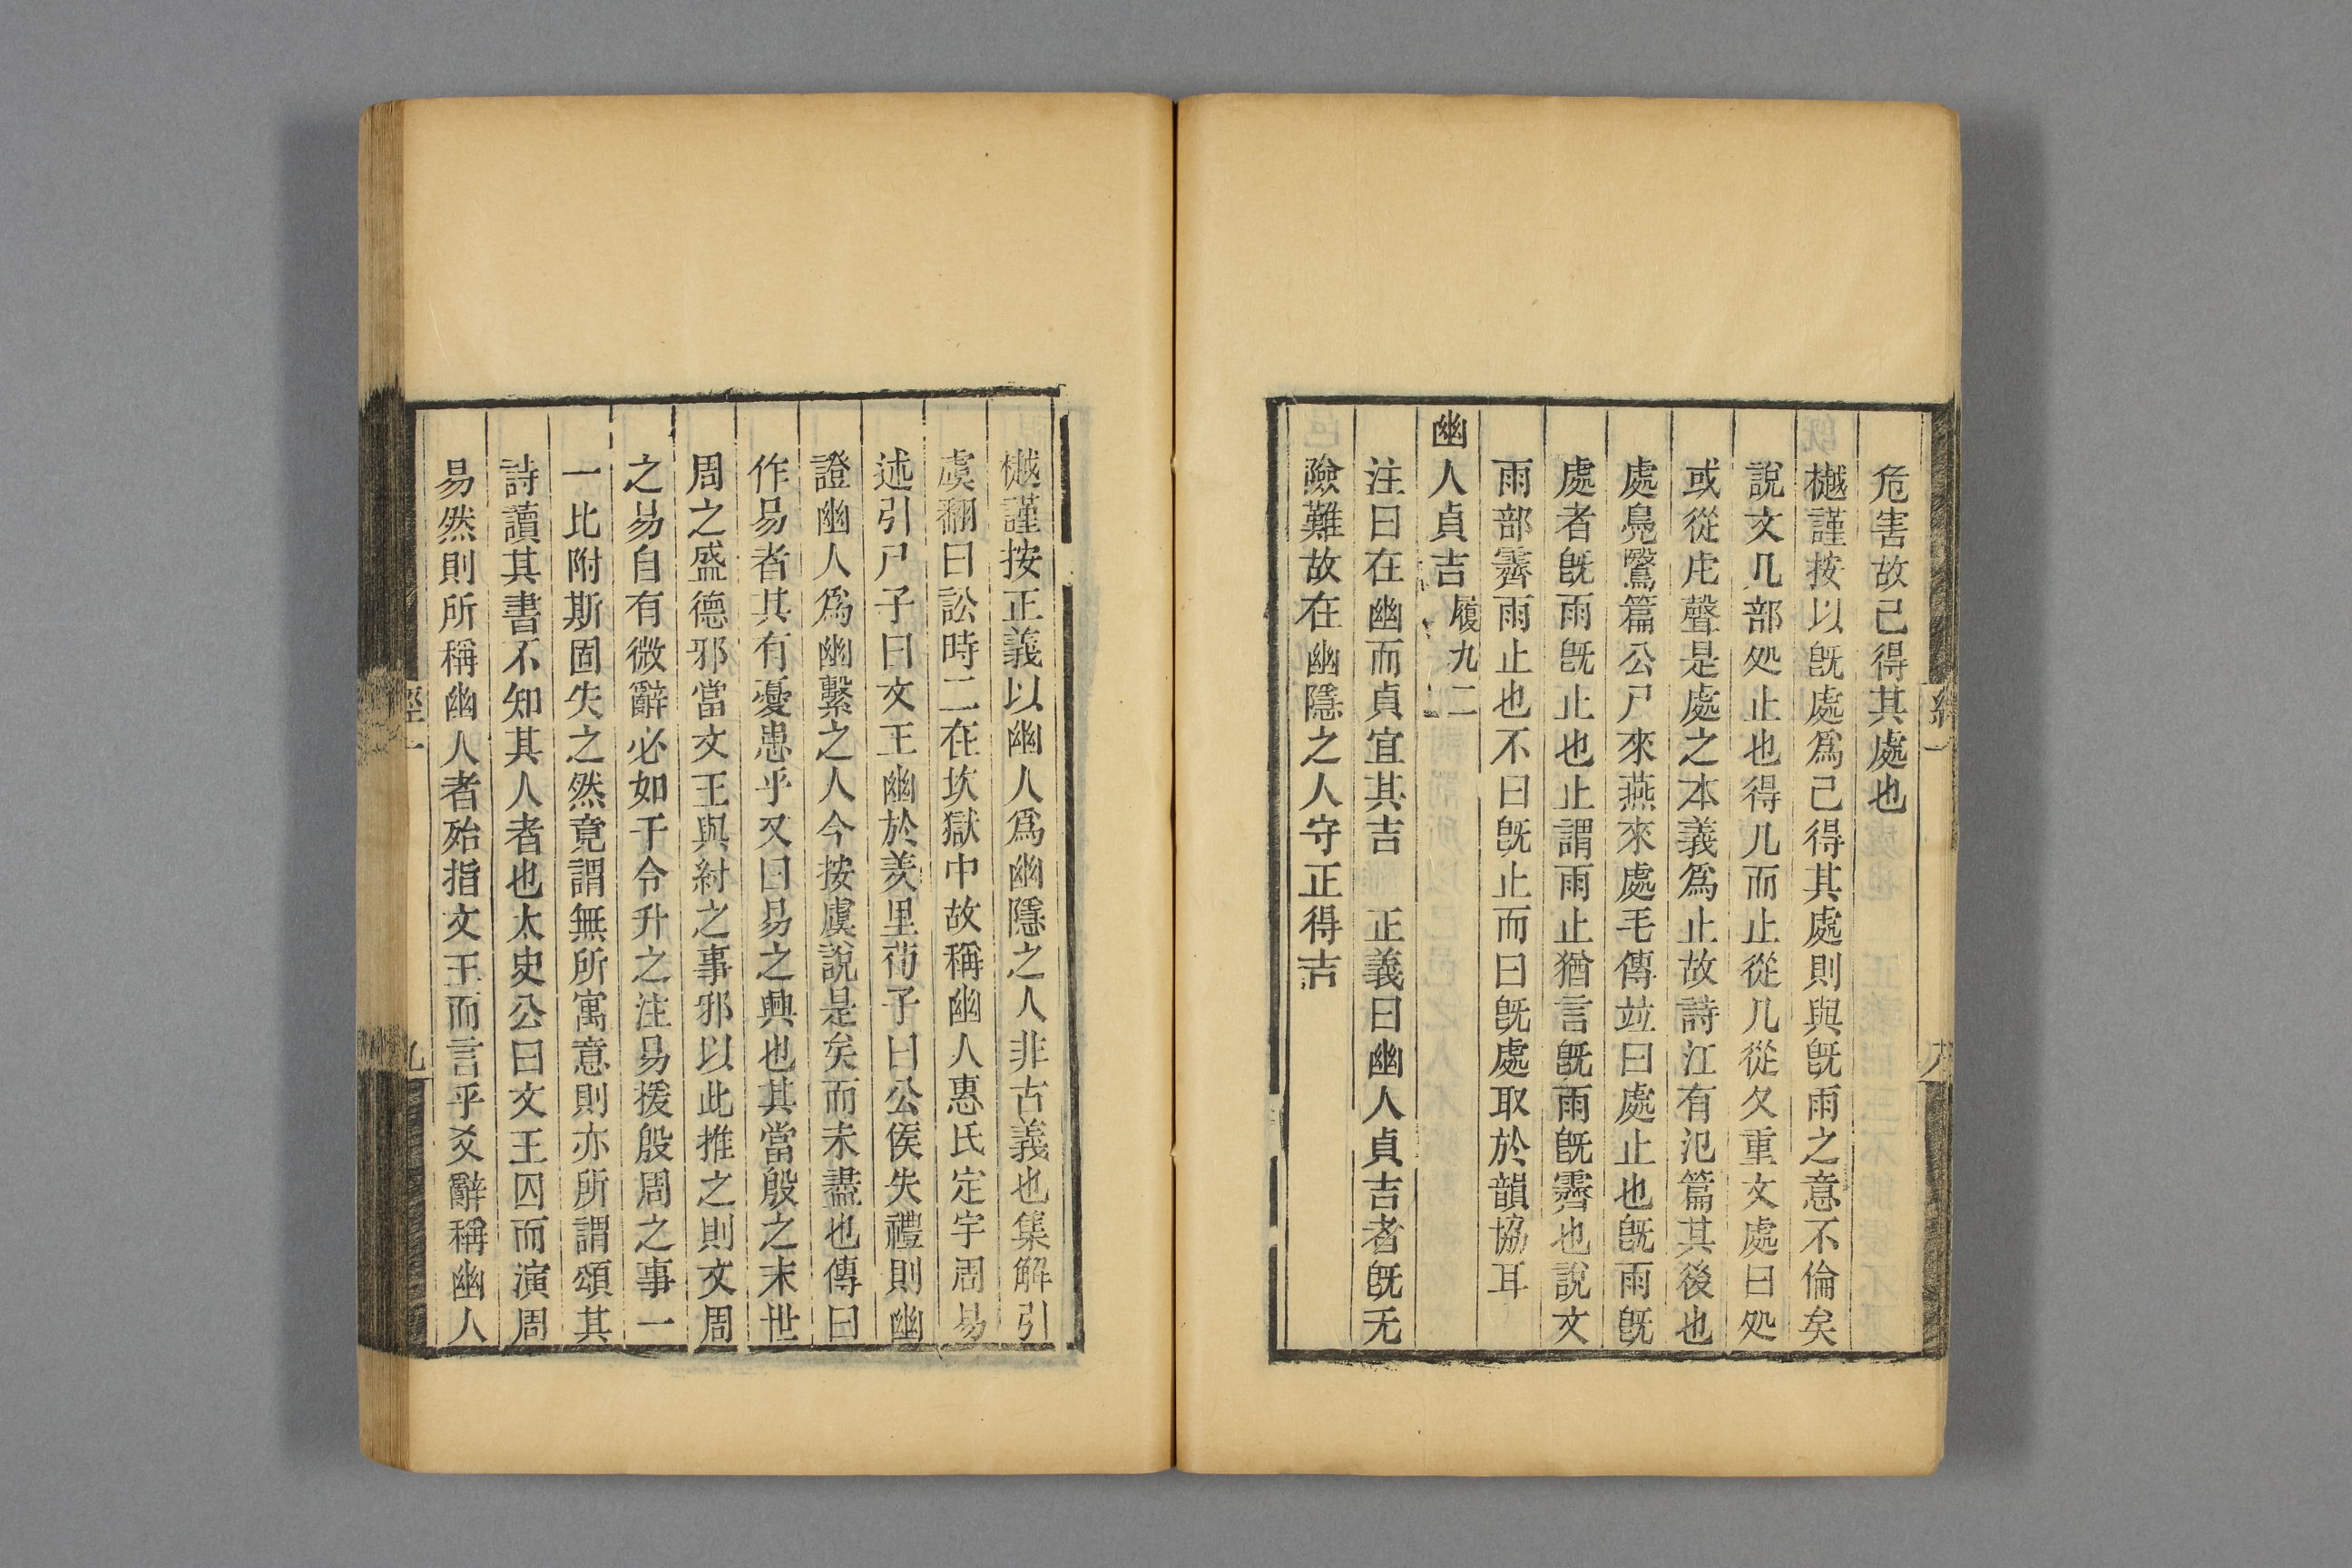 危害故己得其處也
樾謹按以旣處爲己得其處則與旣雨之意不倫矣
說文几部処止也得几而止從几從夊重文處曰処
或從虍聲是處之本義爲止故詩江有汜篇其後也
處鳧鷖篇公尸來燕來處毛傳竝曰處止也旣雨旣
處者旣雨旣止也止謂雨止猶言旣雨旣霽也說文
雨部霽雨止也不曰旣止而曰旣處取於韻協耳
幽人貞吉 履九二
注曰在幽而貞宜其吉 正義曰幽人貞吉者旣无
險難故在幽隱之人守正得吉
樾謹按正義以幽人爲幽隱之人非古義也集解引
虞翻曰訟時二在坎獄中故稱幽人惠氏定宇周易
述引尸子曰文王幽於羑里荀子曰公侯失禮則幽
證幽人爲幽繫之人今按虞說是矣而未盡也傳曰
作易者其有憂患乎又曰易之興也其當殷之末世
周之盛德邪當文王與紂之事邪以此推之則文周
之易自有微辭必如干令升之注易援殷周之事一
一比附斯固失之然竟謂無所寓意則亦所謂頌其
詩讀其書不知其人者也太史公曰文王囚而演周
易然則所稱幽人者殆指文王而言乎爻辭稱幽人
經一
九